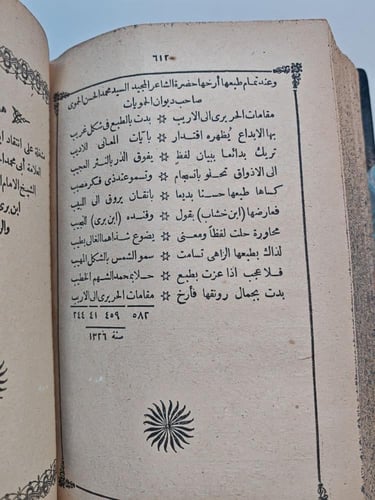 ٦١٢
وعند تمام طبعها أرخها حضرة الشاعر المجيد السيد محمد الحسن الحموى
صاحب ديوان الحمويات
مقامات الحريرى الى الاريب * بدت بالطبع فى شكل غريب
بها الابداع يظهره اقتدار * بآيات المعانى للاديب
تريك بدائعا ببيان لفظ * يفوق الدر بالنثر العجيب
الى الاذواق تحلو بانسجام * وتسمو عند ذى فكر مصيب
كساها طبعها حسنا بديعا * باتقان يروق الى اللبيب
فعارضها (ابن خشاب) بقول * وفنده (ابن برى) النجيب
محاورة حلت لفظا ومعنى * يضوع شذاهما الغالى بطيب
لذاك بطبعها الزاهى تسامت * سمو الشمس بالشكل المهيب
فلا عجب اذا عزت بطبع * حلا بمحمد الشهم الخطيب
بدت بجمال رونقها فأرخ * مقامات الحريرى الى الاريب
٥٨٢ ٤٥٩ ٤١ ٢٤٤
سنة ١٣٢٦
على انتقاد
العلامة أبى محمد
الشيخ الامام
ابن برى